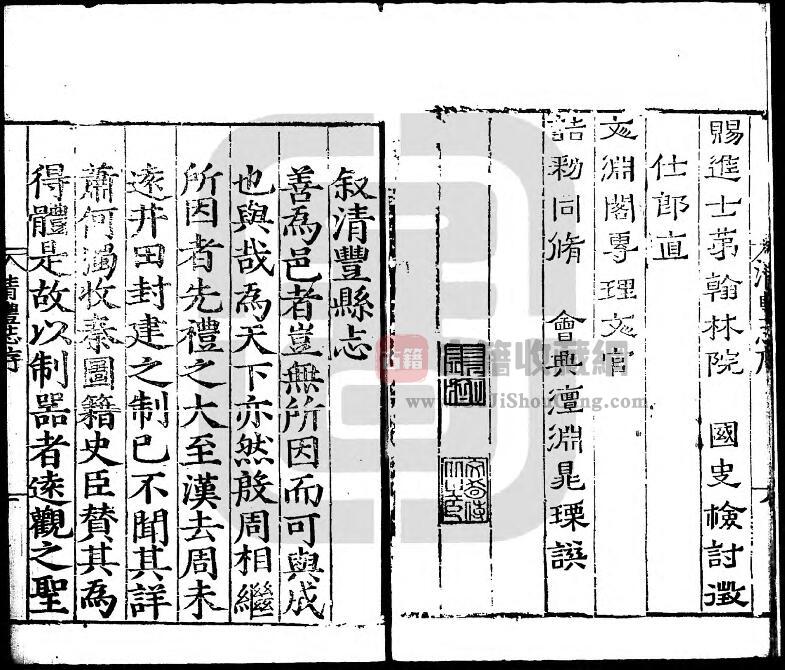 賜進士苐翰林院 國史檢討徵
仕郎直
文淵閣專理文官
誥勅同脩 會典澶淵晁瑮譔
叙清豐縣志
善為邑者豈無所因而可與成
也與哉為天下亦然殷周相繼
所因者先禮之大至漢去周未
逺井田封建之制已不聞其詳
蕭何獨收秦圖籍史臣賛其為
得體是故以制噐者逺觀之聖
清豐志序
古籍
古籍收藏網